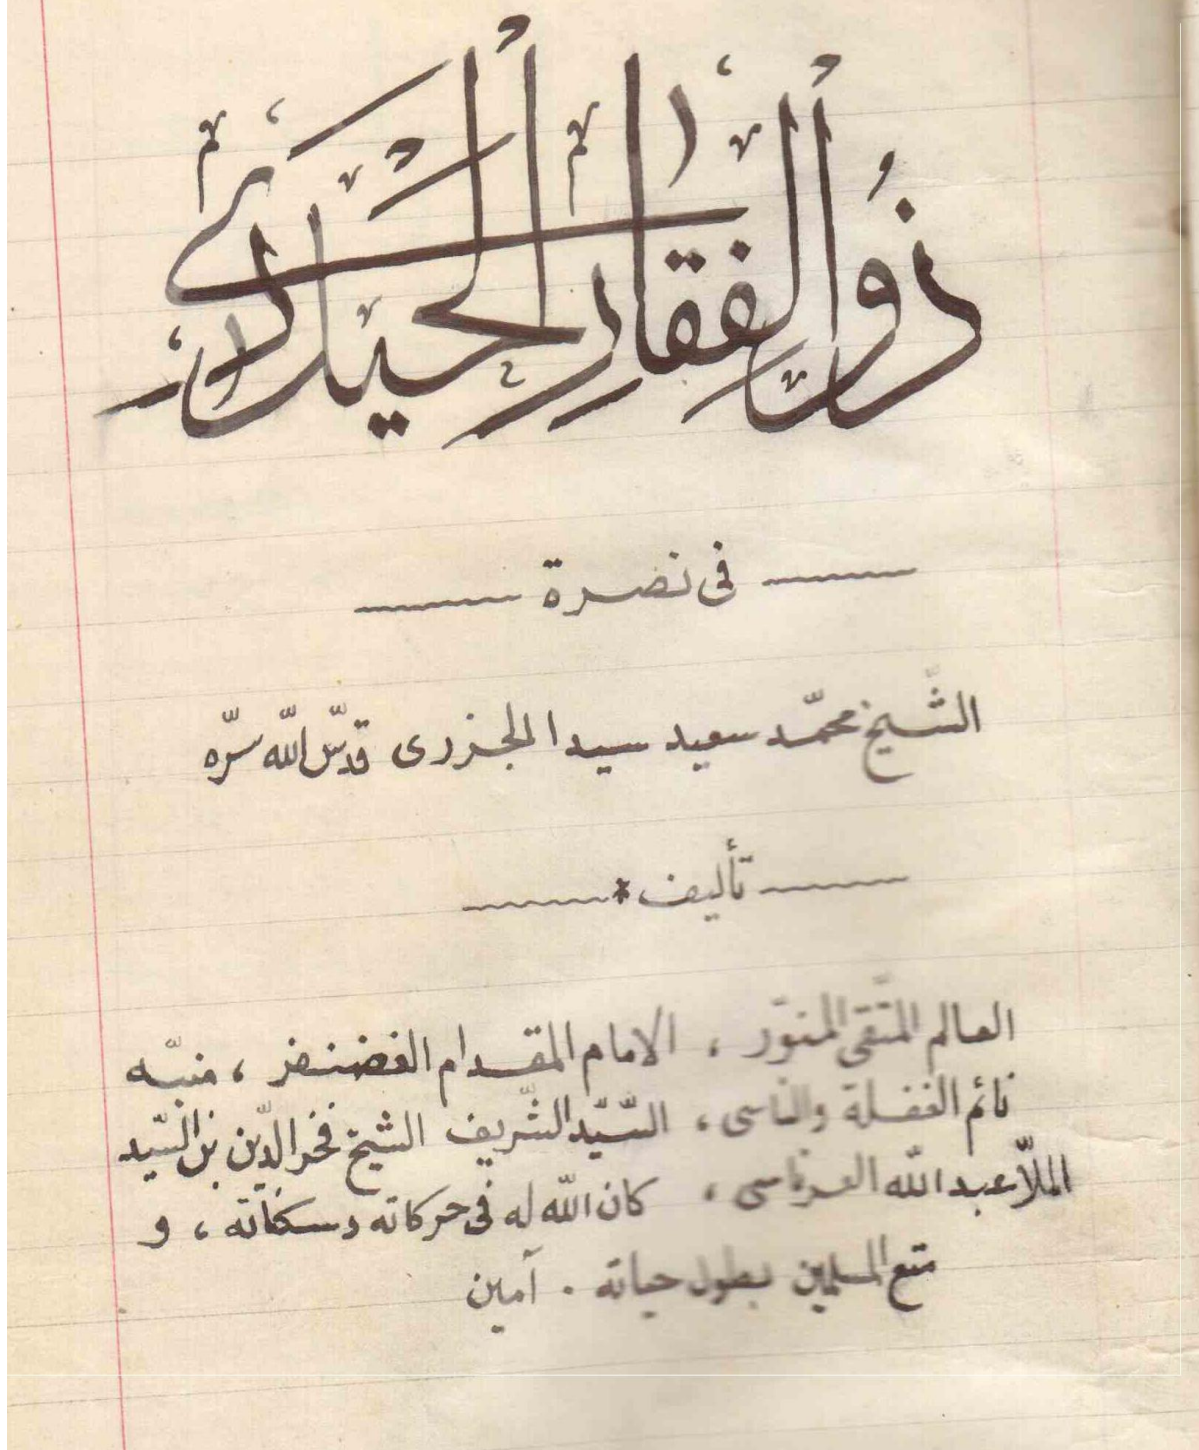 ذُو ٱلْفَقَارِ ٱلْحَيْدَرِيّ
فى نصرة
الشّيخ محمّد سعيد سيدا الجزرى قدّس اللّه سرّه
تأليف *
العالم المتّقى المنوّر ، الامام المقدام الغضنفر ، منبّه
نائم الغفلة والناسى ، السّيّد الشّريف الشيخ فخر الدّين بن السّيّد
الملاّ عبد اللّه العرناسى ، كان اللّه له فى حركاته وسكناته ، و
متع المسلمين بطول حياته . آمين